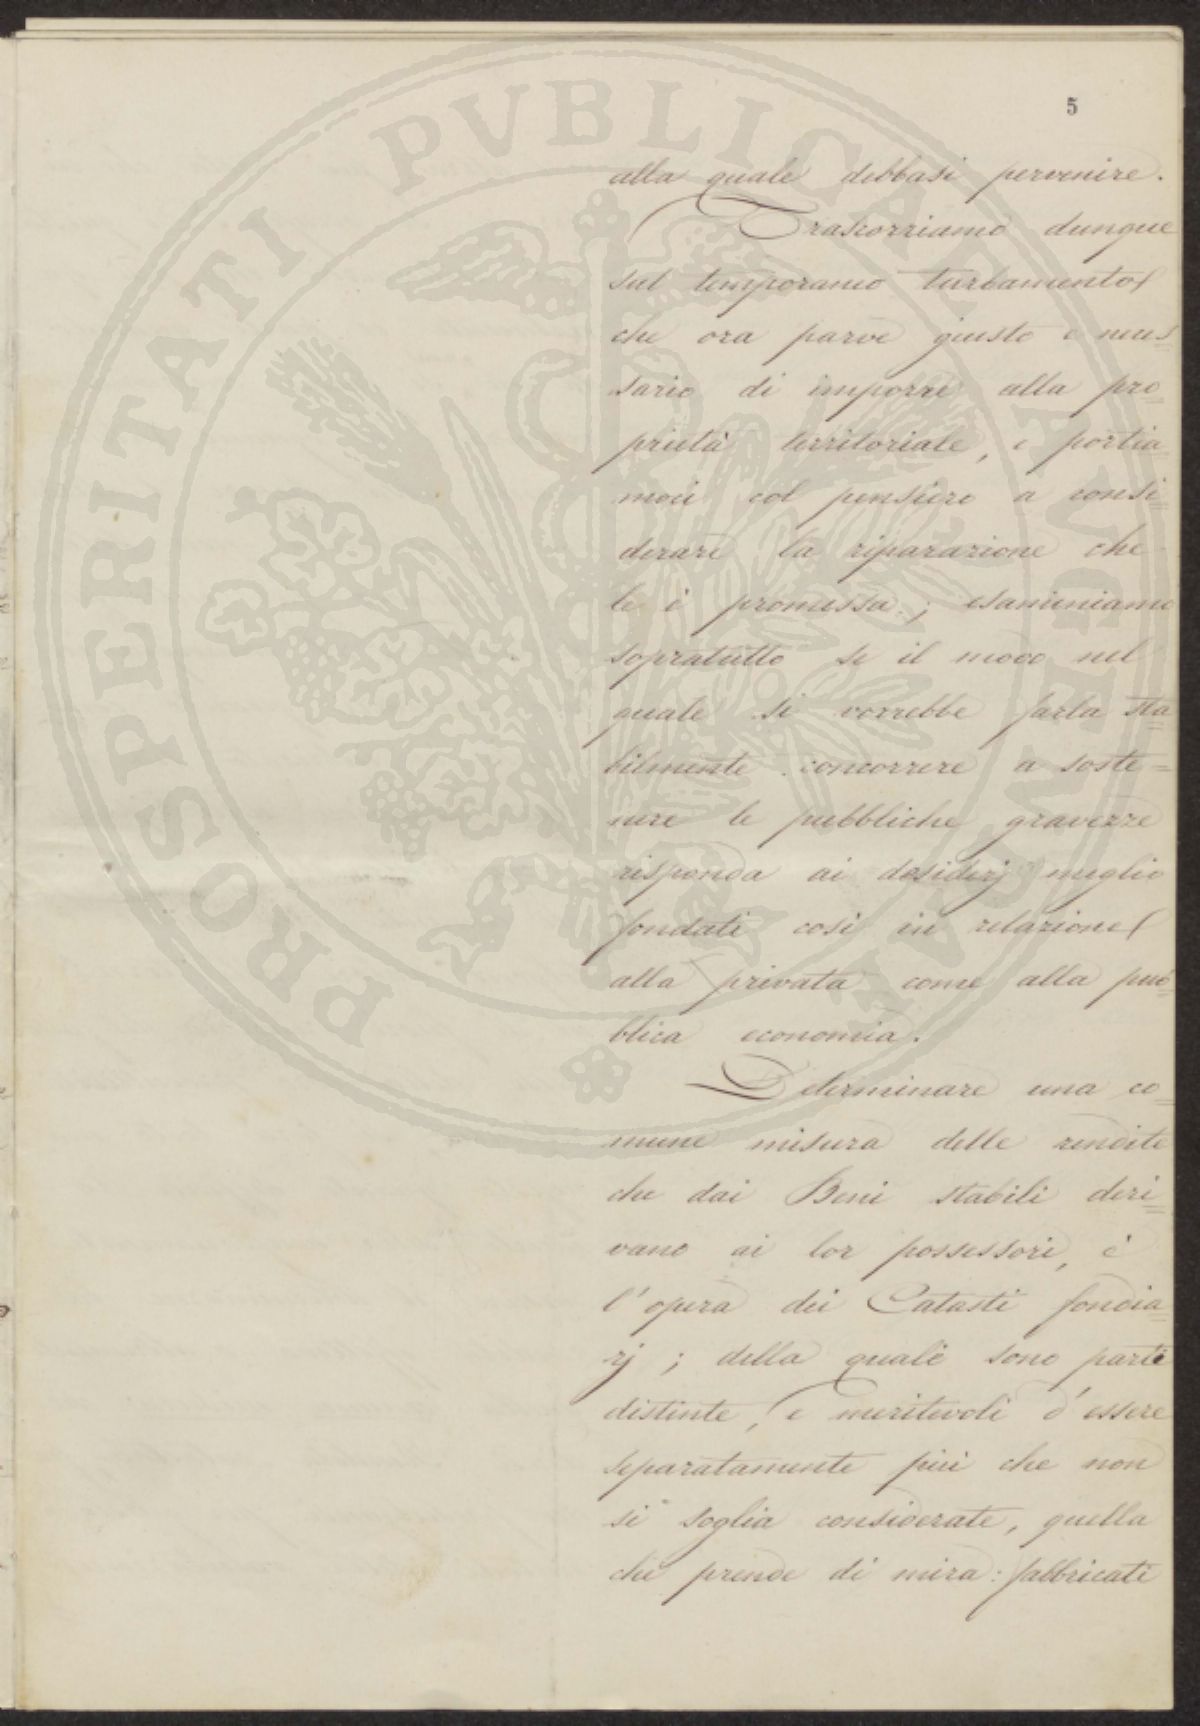 PROSPERITATI PVBLICAE AVGENDAE
5
alla quale debbasi pervenire.
Trascorriamo dunque
sul temporaneo turbamento
che ora parve giusto e neces=
sario di imporre alla pro=
prietà territoriale, e portia=
moci col pensiero a consi=
derare la riparazione che
le è promessa; esaminiamo
sopratutto se il modo nel
quale si vorrebbe farla sta=
bilmente concorrere a soste=
nere le pubbliche gravezze
risponda ai desiderj meglio
fondati così in relazione
alla privata come alla pub=
blica economia.
Determinare una co=
mune misura delle rendite
che dai Beni stabili deri=
vano ai lor possessori, è
l'opera dei Catasti fondia=
rj; della quale sono parti
distinte, e meritevoli d'essere
separatamente più che non
si soglia considerate, quella
che prende di mira i fabbricati